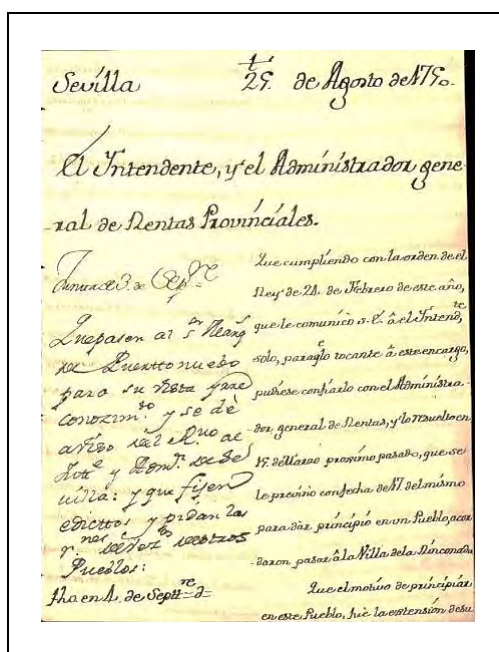 Sevilla 25. de Agosto de 1750.
El Intendente, y el Administrador gene-
-ral de Rentas Provinciales.
Junta de 3. de Sepre
Que pasen al Sr Marqs
de Puertto nuebo
para su vista y re
conozimto y se dè
aviso del Rvo al
Intte y Admr de Se
villa: y que fijen
edicttos y pidan las
de los ottros
Pueblos:
fho en 4. de Septtre
Que cumpliendo con la orden de el
Rey de 24. de Febrero de este año,
que le comunicó V.E. â el Intendte,
solo, para qe lo tocante â este encargo,
pudiese confiarlo con el Administra-
-dor general de Rentas, y lo resuelto en
15. de Marzo proximo pasado, que se
le previno con fecha de 17. del mismo
para dar principio en un Pueblo, acor
-daron pasar â la Villa de la Rinconada
Que el motivo de principiar
en este Pueblo, fuè la extensión de su